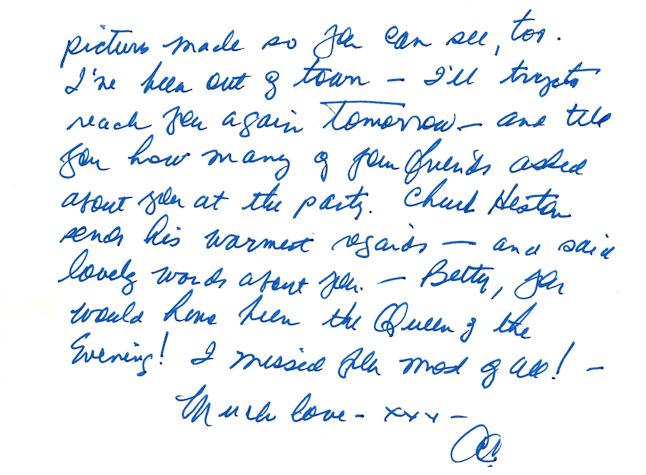 pictures made so you can see, too.
I've been out of town – I'll try to
reach you again Tomorrow – and tell
you how many of your friends asked
about you at the party. Chuck Heston
sends his warmest regards – and said
lovely words about you. – Betty, you
would have been the Queen of the
Evening! I missed you most of all! –
Much love – xxx –